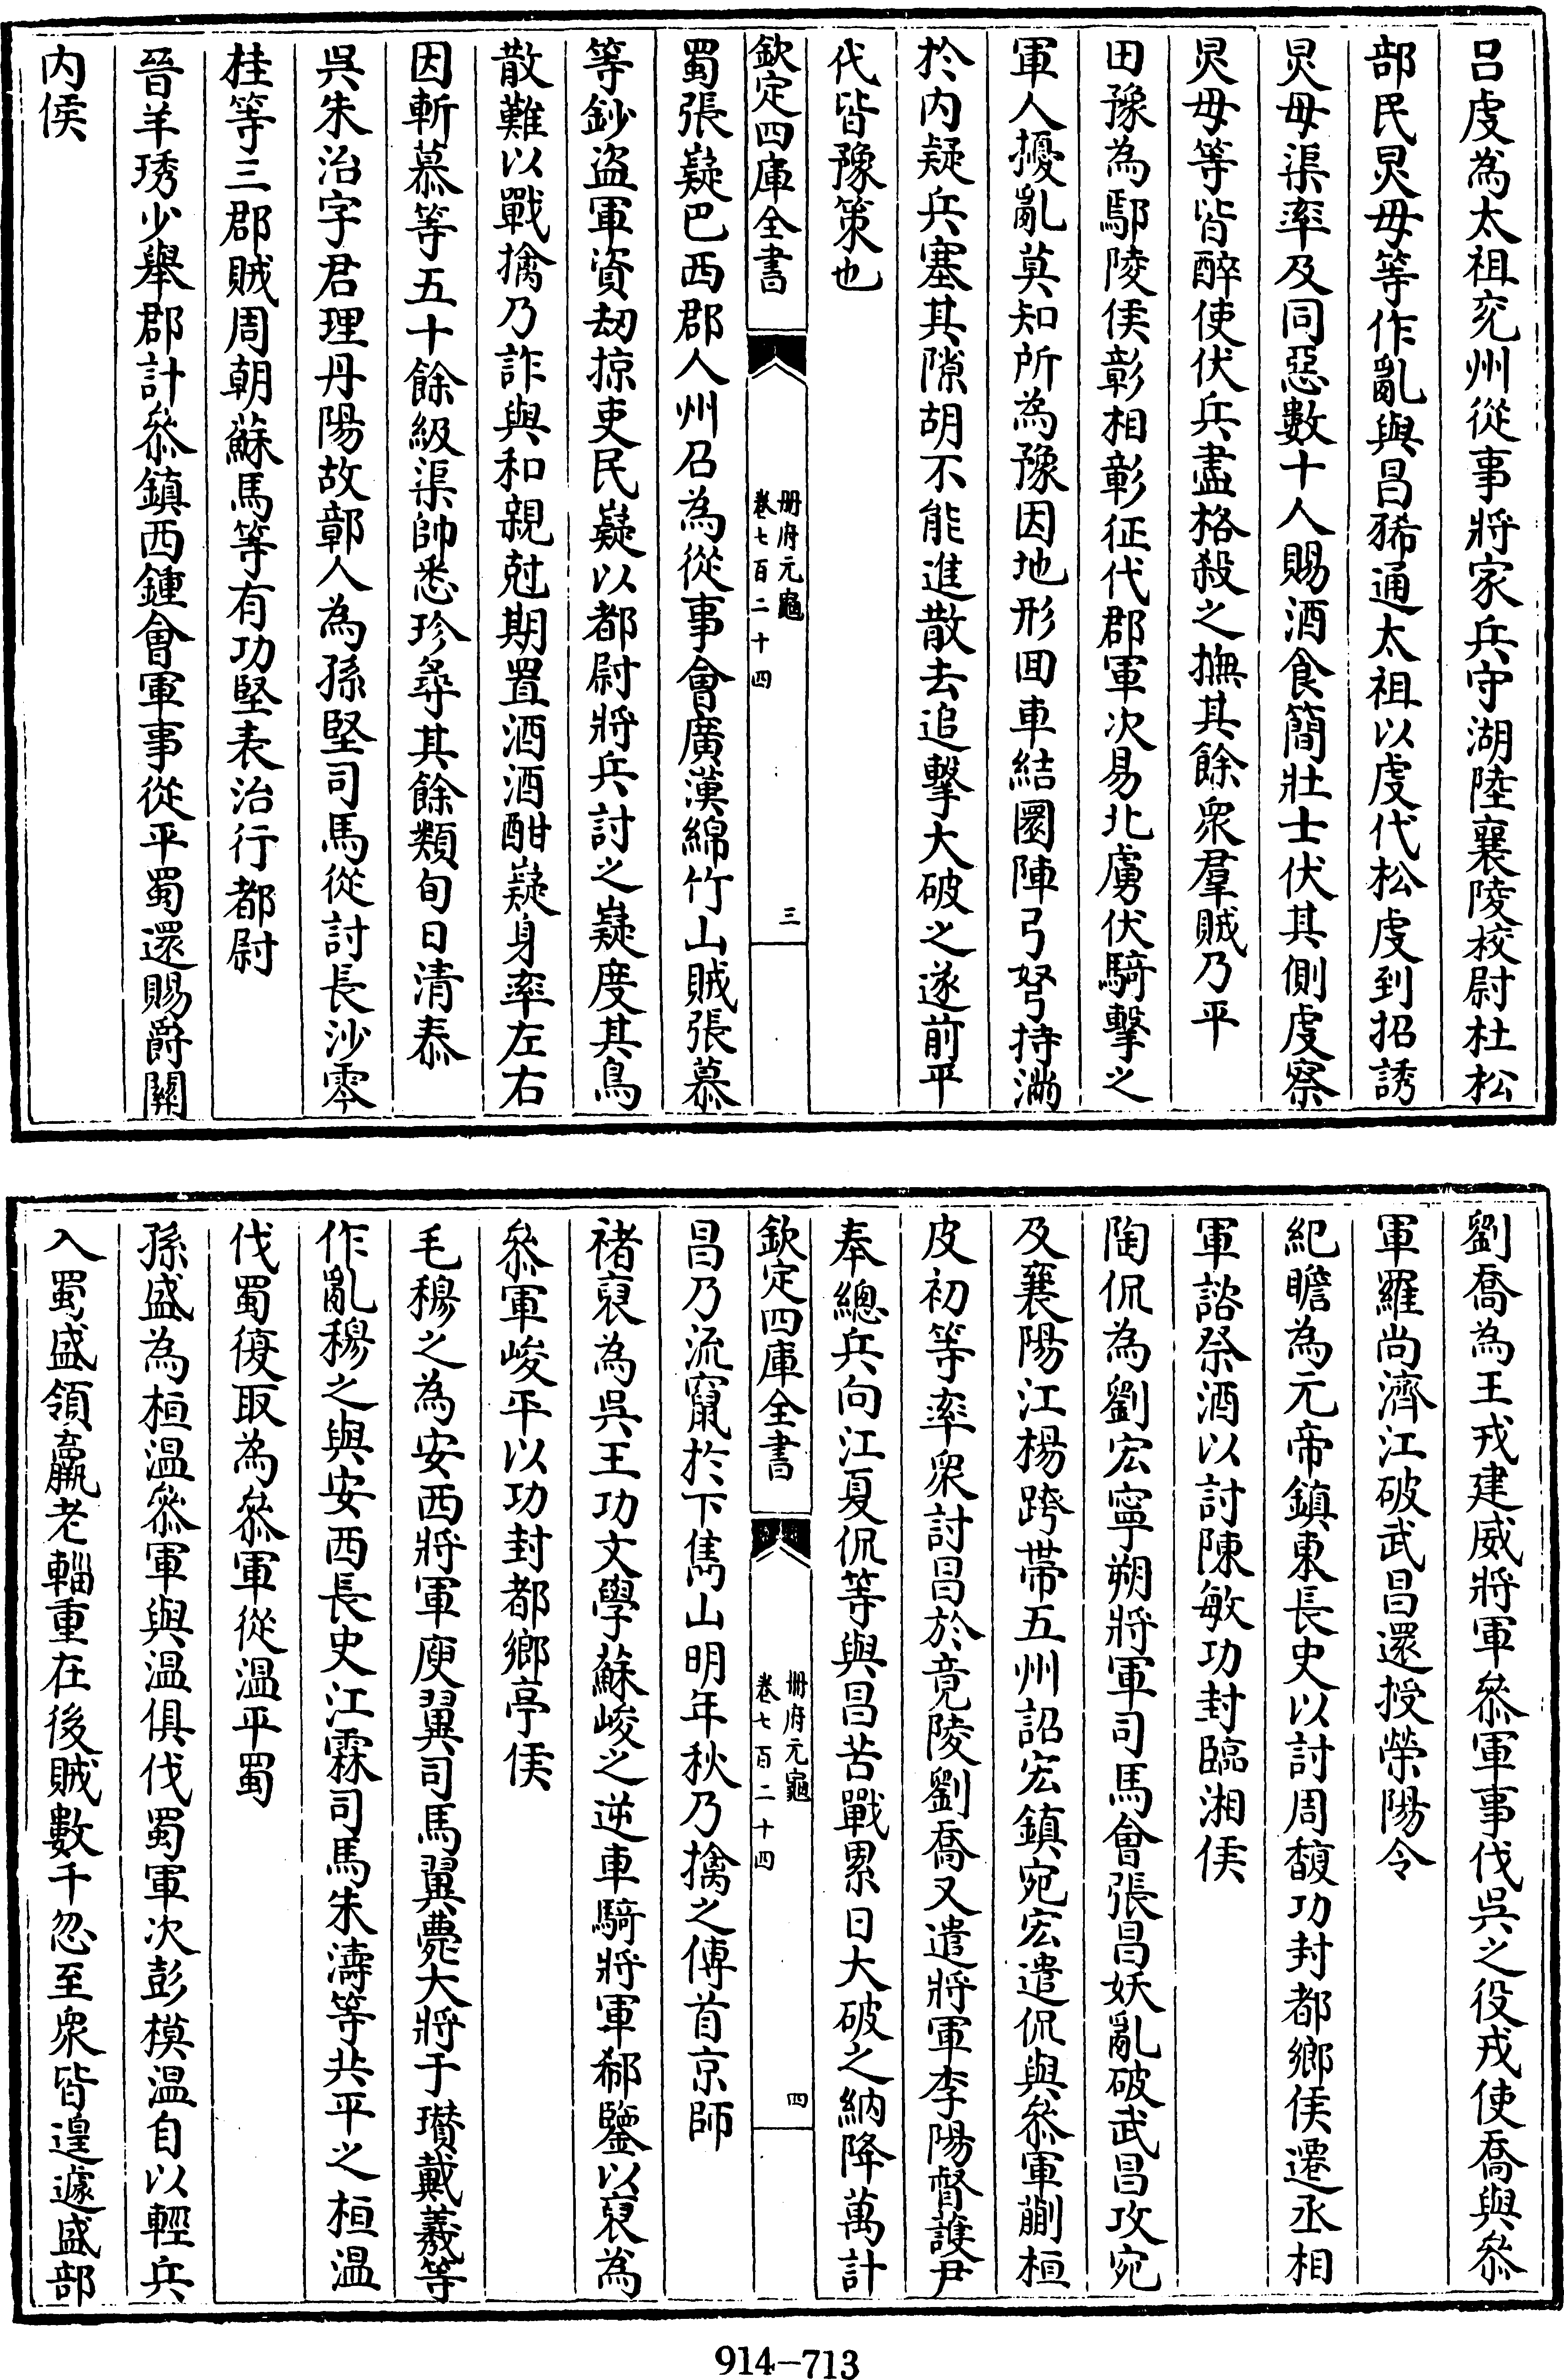 呂虔為太祖兖州從事將家兵守湖陸襄陵校尉杜松
部民炅毋等作亂與昌豨通太祖以虔代松虔到招誘
炅毋渠率及同惡數十人賜酒食簡壯士伏其側虔察
炅毋等皆醉使伏兵盡格殺之撫其餘衆羣賊乃平
田豫為鄢陵侯彰相彰征代郡軍次易北虜伏騎擊之
軍人擾亂莫知所為豫因地形回車結圜陣弓弩持滿
於内疑兵塞其隙胡不能進散去追擊大破之遂前平
代皆豫策也
欽定四庫全書
册府元龜
卷七百二十四
三
蜀張嶷巴西郡人州召為從事會廣漢綿竹山賊張慕
等鈔盗軍資刼掠吏民嶷以都尉將兵討之嶷度其鳥
散難以戰擒乃詐與和親尅期置酒酒酣嶷身率左右
因斬慕等五十餘級渠帥悉殄尋其餘類旬日清泰
吳朱治字君理丹陽故鄣人為孫堅司馬從討長沙零
桂等三郡賊周朝蘇馬等有功堅表治行都尉
晉羊琇少舉郡計叅鎮西鍾會軍事從平蜀還賜爵關
内侯
劉喬為王戎建威將軍叅軍事伐吳之役戎使喬與叅
軍羅尚濟江破武昌還授滎陽令
紀瞻為元帝鎮東長史以討周馥功封都鄉侯遷丞相
軍諮祭酒以討陳敏功封臨湘侯
陶侃為劉宏寧朔將軍司馬會張昌妖亂破武昌攻宛
及襄陽江楊跨帶五州詔宏鎮宛宏遣侃與叅軍蒯桓
皮初等率衆討昌於竟陵劉喬又遣將軍李陽督護尹
奉總兵向江夏侃等與昌苦戰累日大破之納降萬計
欽定四庫全書
册府元龜
卷七百二十四
四
昌乃流竄於下雋山明年秋乃擒之傳首京師
禇裒為吳王功文學蘇峻之逆車騎將軍郗鑒以裒為
叅軍峻平以功封都鄉亭侯
毛穆之為安西將軍庾翼司馬翼薨大將于瓚戴羲等
作亂穆之與安西長史江霖司馬朱濤等共平之桓温
伐蜀復取為叅軍從温平蜀
孫盛為桓温叅軍與温俱伐蜀軍次彭模温自以輕兵
入蜀盛領羸老輜重在後賊數千忽至衆皆遑遽盛部
914-713